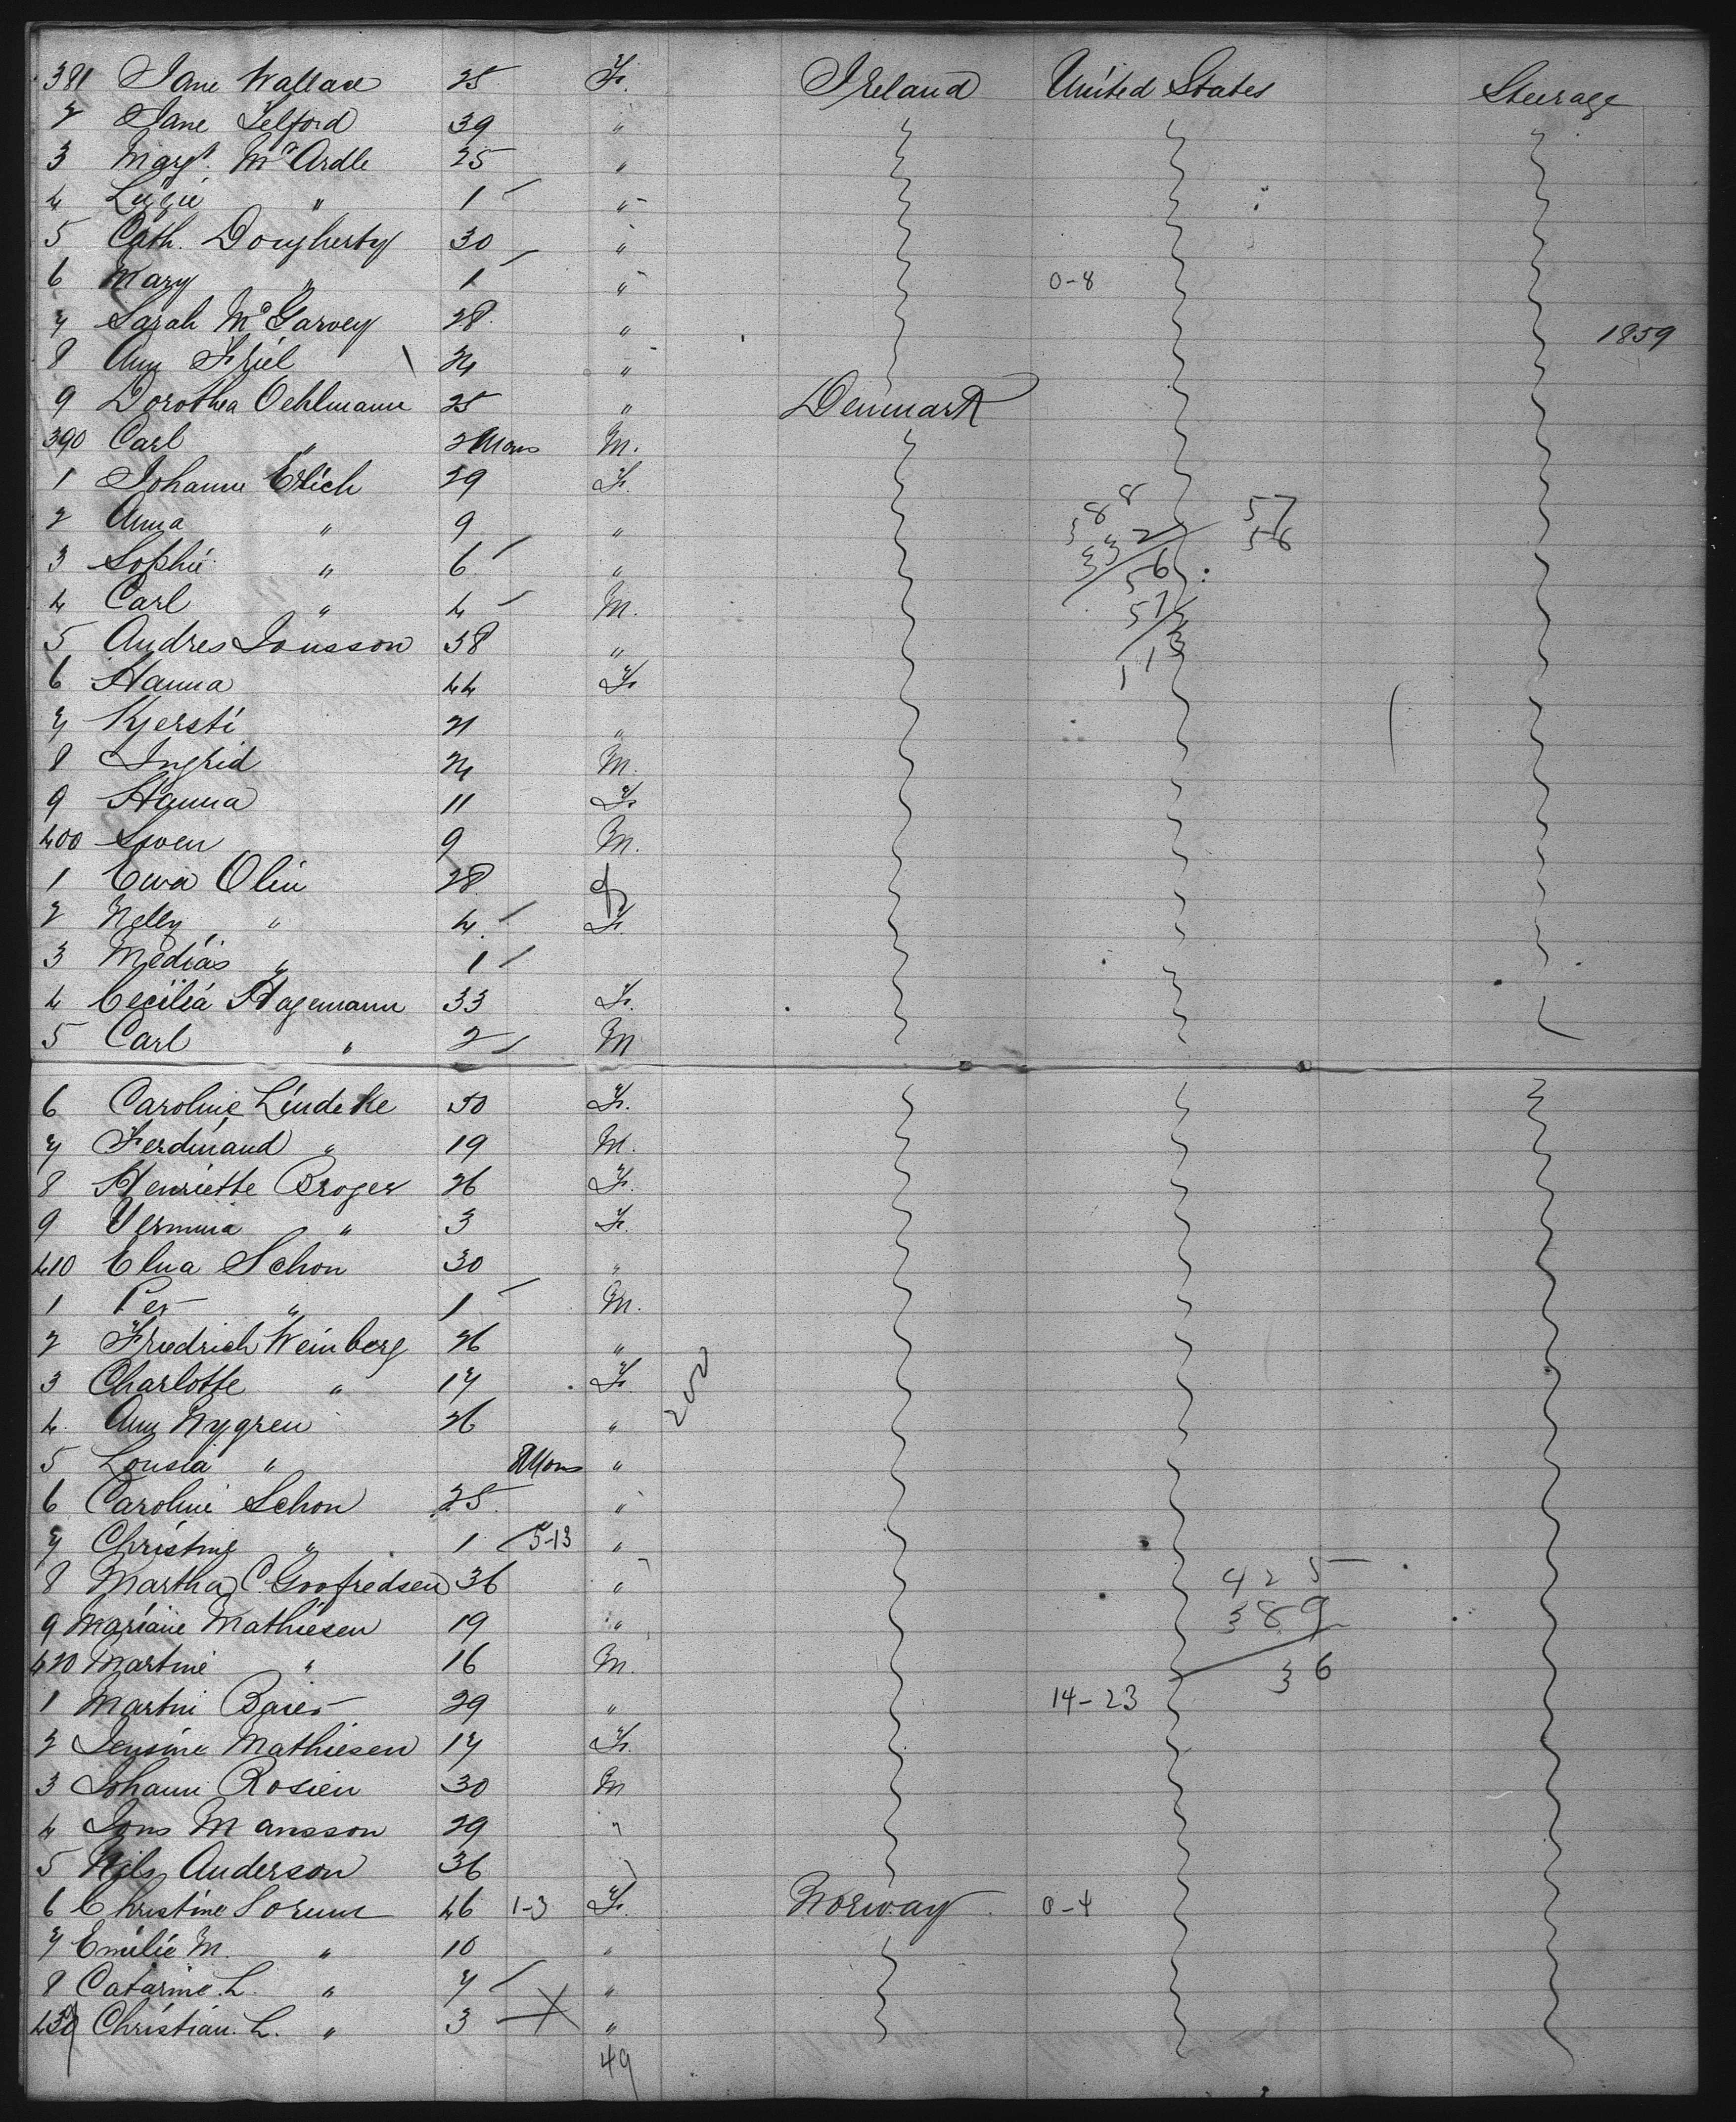 381 Jane Wallace 25 F. Ireland United States Steerage
2 Jane Telford 39 "
3 Margt. McArdle 25 "
4 Lizzie " 1 "
5 Cath. Dougherty 30 "
6 Mary " 1 " 0-8
7 Sarah McGarvey 28 " 1859
8 Ann Friel 24 "
9 Dorothea Oehlmann 25 " Denmark
390 Carl " 2 Mons M.
1 Johanne Erlich 29 F.
2 Anna " 9 " 57
3 Sophie " 6 " 56 56
4 Carl " 4 M. 57
5 Andres Jonsson 38 " 113
6 Hanna 44 F
7 Kjersti 21 "
8 Ingrid 24 M.
9 Hanna 11 F.
400 Swen 9 M.
1 Ewa Olin 28
2 Nelly " 4 F.
3 Medias " 1
4 Cecilia Hagemann 33 F.
5 Carl " 2 M
6 Caroline Lindeke 50 F.
7 Ferdinand " 19 M.
8 Henriette Broger 26 F.
9 Vermina " 3 F.
410 Elna Schon 30 "
1 Per " 1 M.
2 Friedrich Weinberg 26 "
3 Charlotte " 17 F.
4 Ann Nygren 26 "
5 Lousia " 8 Mons "
6 Caroline Schon 25 "
7 Christine " 1 5-13 "
8 Martha C. Goofredsen 36 " 425
9 Mariane Mathiesen 19 " 389
420 Martine " 16 M. 36
1 Martin Baier 29 " 14-23
2 Jensine Mathiesen 17 F.
3 Johann Rosien 30 M
4 Jons Mansson 29 "
5 Nils Anderson 36 "
6 Christine Sorum 46 1-3 F. Norway 0-4
7 Emilie M. " 10 "
8 Catarine L. " 7 "
Christian L. " 3 "
49